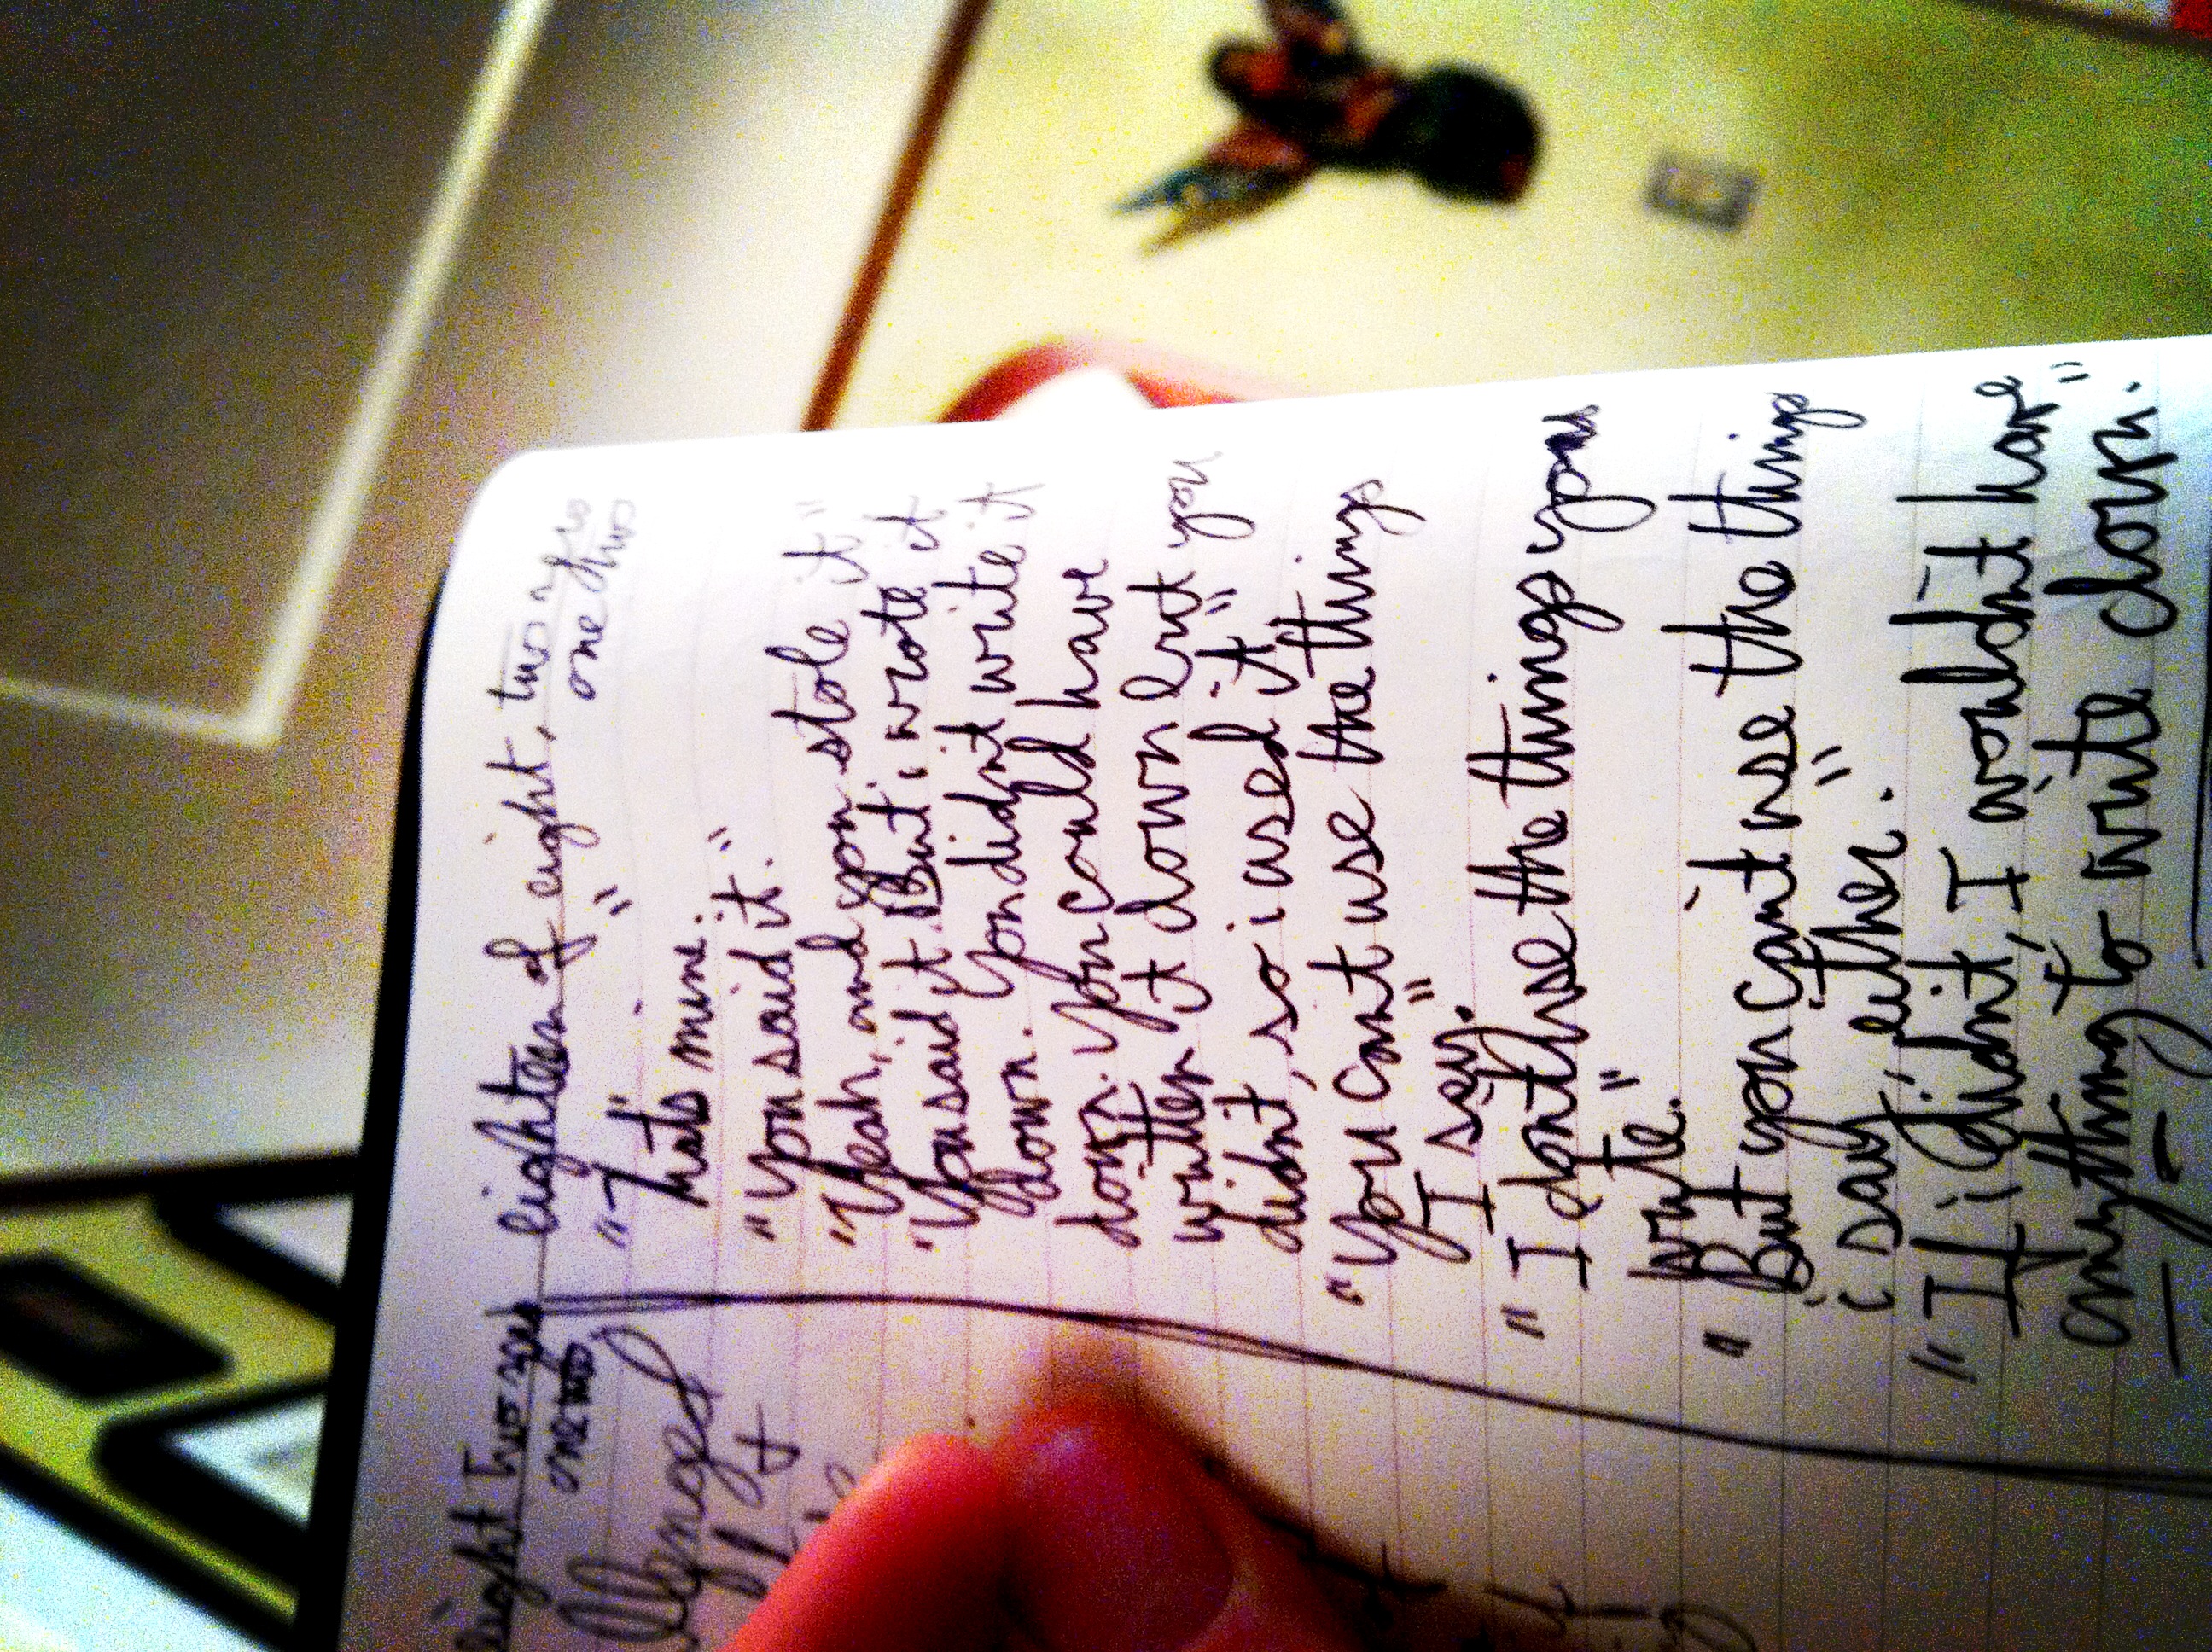 eighteen of eight, two
one two
"That's mine."
"You said it."
"Yeah, and you stole it"
"You said it. But i wrote it
down. You didn't write it
down. You could have
written it down but you
didn't, so i used it"
"You can't use the things
I say."
"I don't use the things you
write."
"But you can't use the thing
i say, either."
"If i didn't, I wouldn't have
anything to write down."
eight two